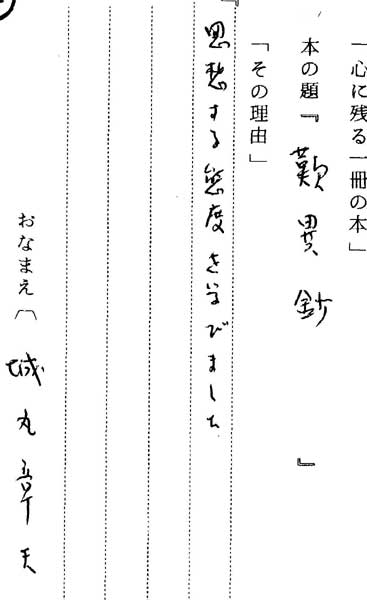 「心に残る一冊の本」
本の題『歎異鈔』
「その理由」
思想する態度を学びました
おなまえ（城丸章夫